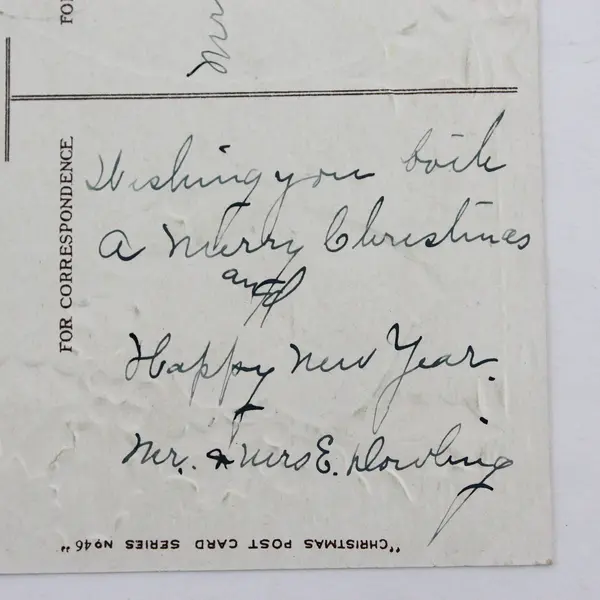 FOR
Mr
FOR CORRESPONDENCE
Wishing you both
a Merry Christmas
and
Happy New Year.
Mr. & Mrs E. Dowling
"CHRISTMAS POST CARD SERIES No 46"